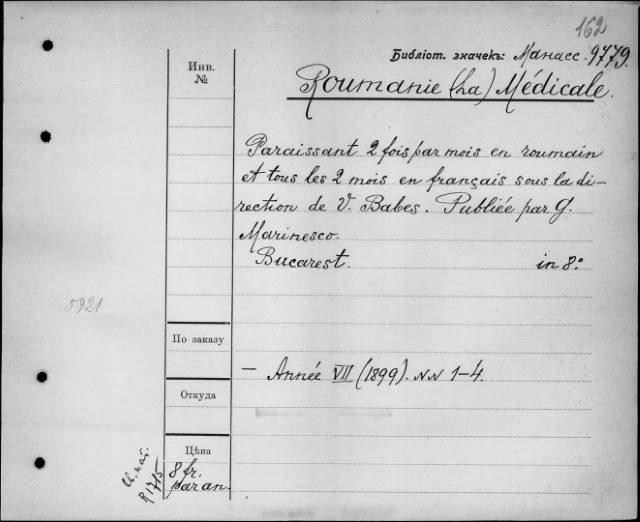 162
Библіот. значекъ: Манасс. 9779.
Инв.
№
Roumanie (La) Médicale.
Paraissant 2 fois par mois en roumain
et tous les 2 mois en français sous la di-
rection de V. Babes. Publiée par G.
Marinesco.
Bucarest. in 8.°
5921
По заказу
— Année VII (1899). NN 1-4.
Откуда
Цѣна
8 fr.
par an.
р 1715